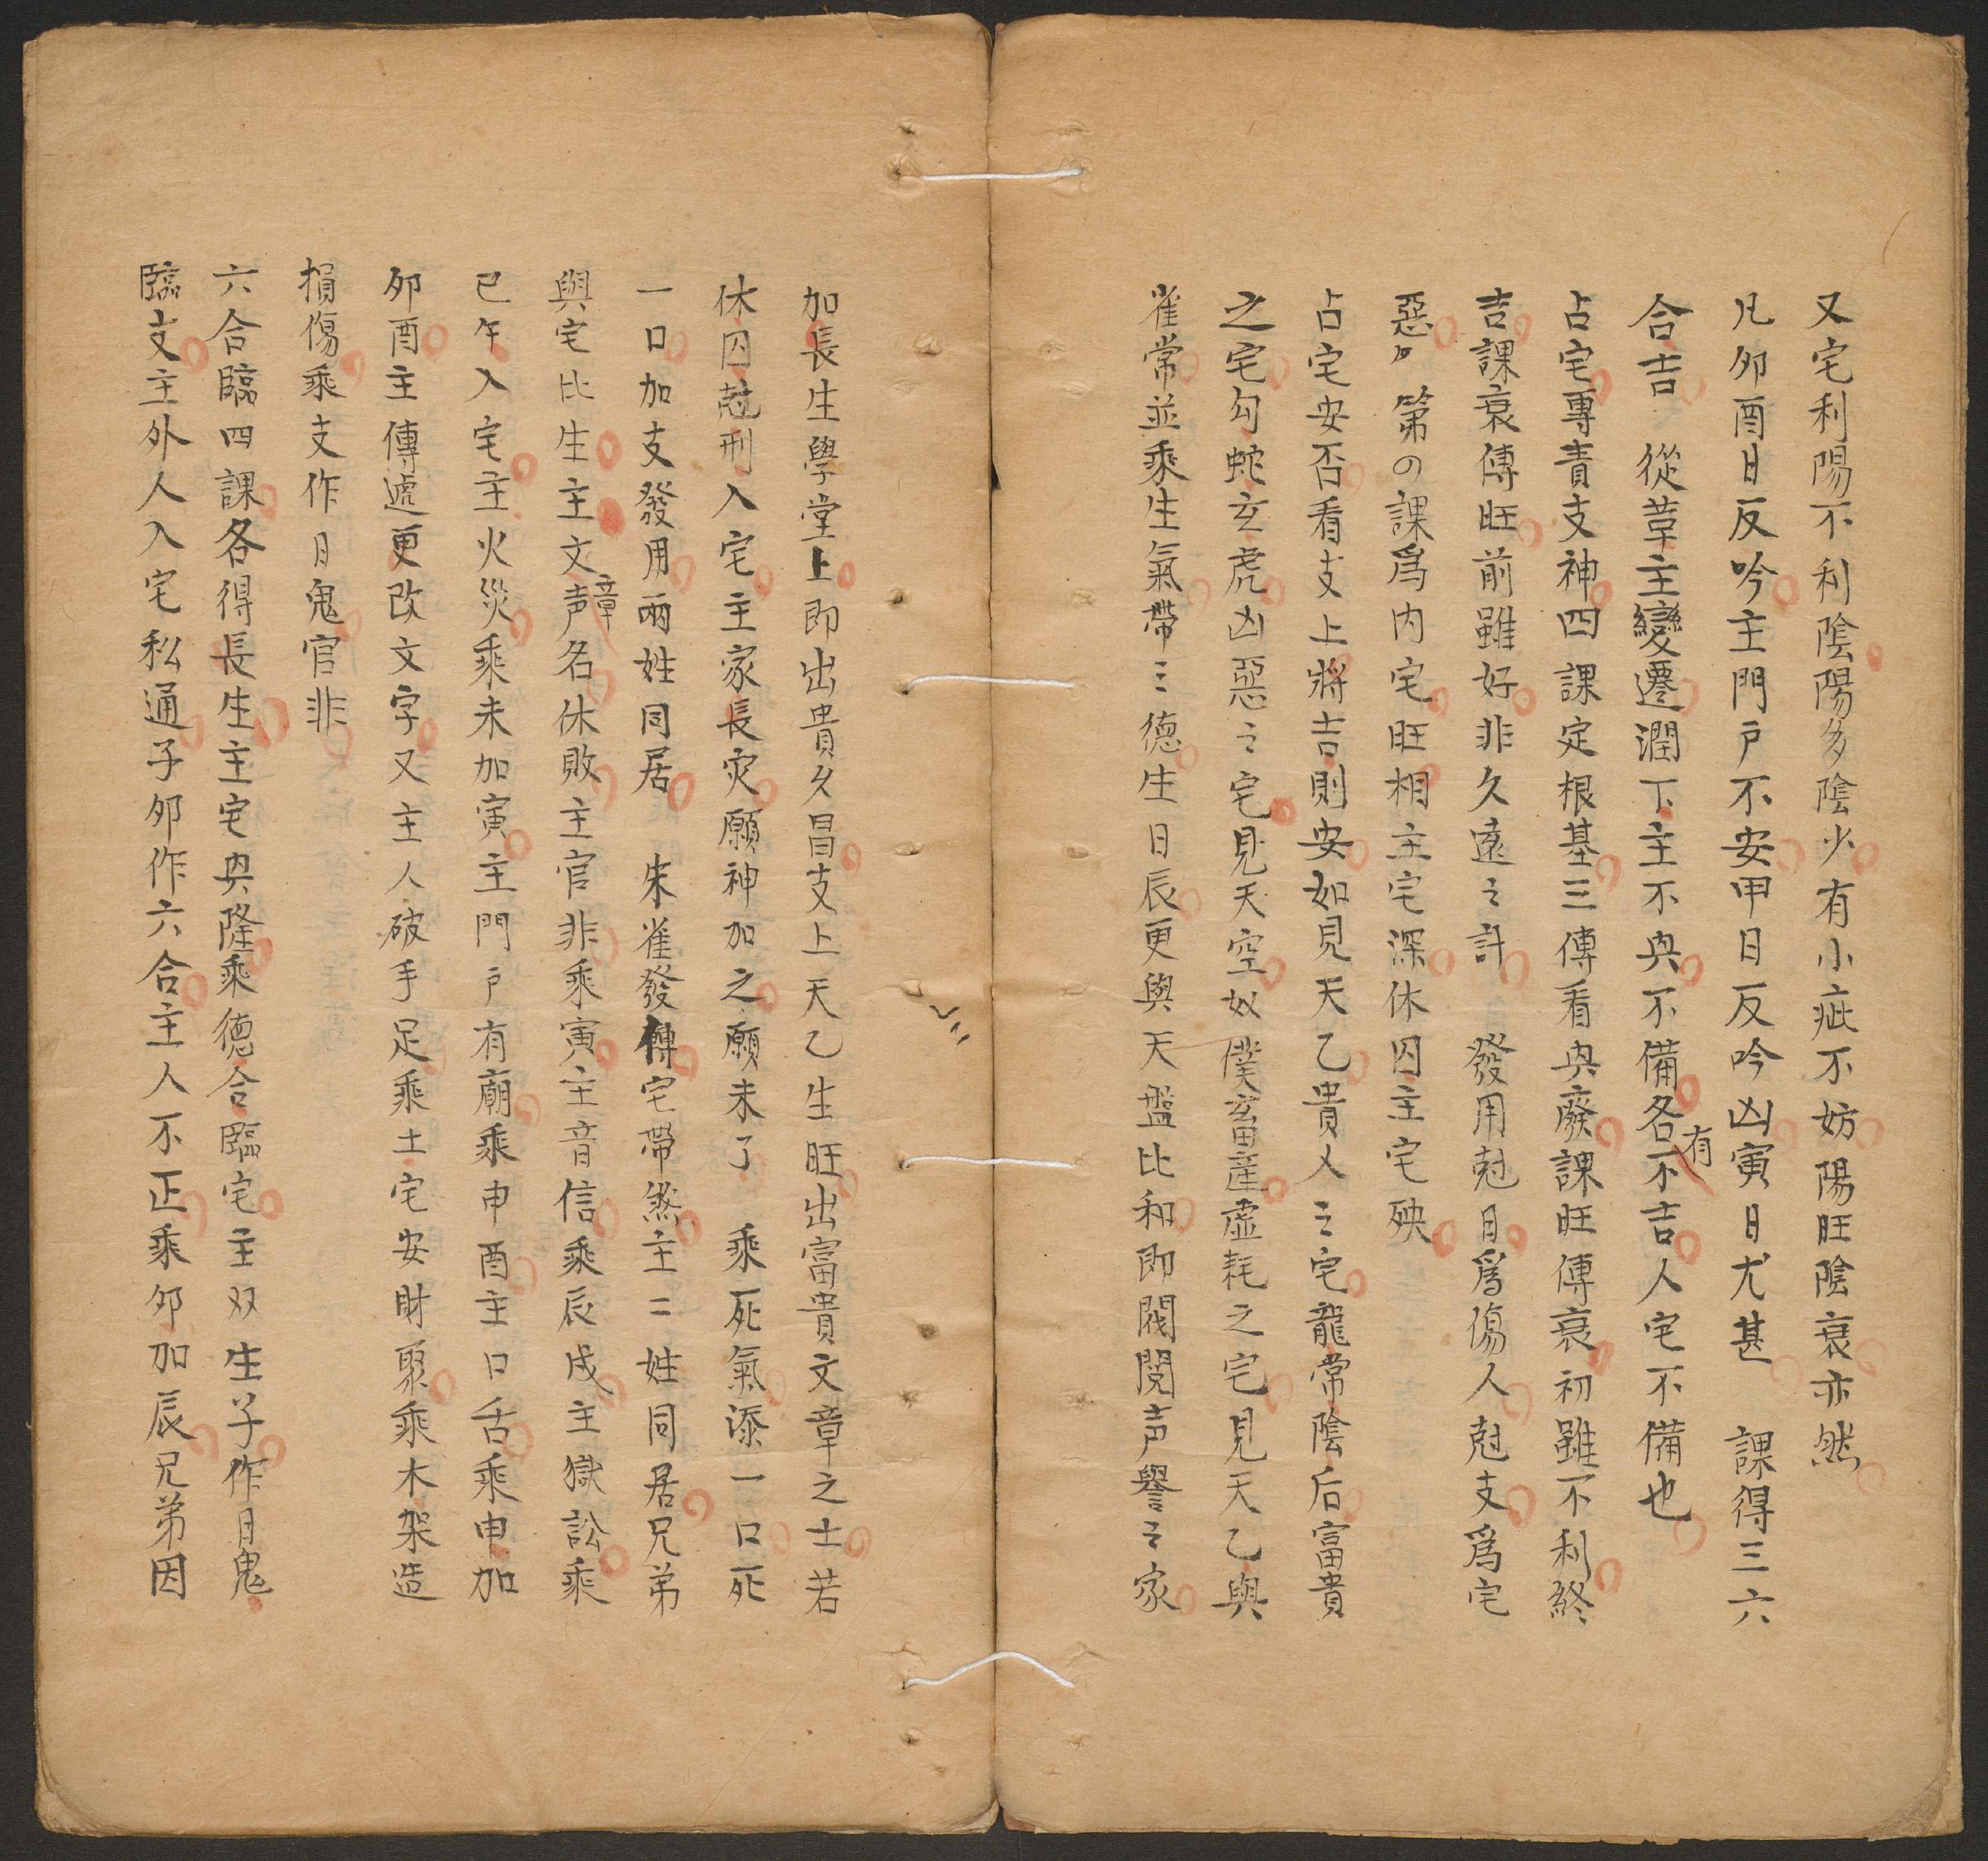 又宅利陽不利陰陽多陰少有小疵不妨陽旺陰衰亦然
凡夘酉日反吟主門戶不安甲日反吟凶寅日尤甚 課得三六
合吉 從革主變遷潤下主不㒷不備各有不吉人宅不備也
占宅專責支神四課定根基三傳看㒷廢課旺傳衰初雖不利終
吉課衰傳旺前雖好非久遠之計 發用尅日爲傷人尅支爲宅
惡 第四課爲内宅旺相主宅深休囚主宅殃
占宅安否看支上將吉則安如見天乙貴人之宅龍常陰后富貴
之宅勾蛇玄虎凶惡之宅見天空奴僕畜産虛耗之宅見天乙與
雀常並乘生氣帶三德生日辰更與天盤比和即閥閱声譽之家
加長生學堂上即出貴久昌支上天乙生旺出富貴文章之士若
休囚尅刑入宅主家長灾願神加之願未了 乘死氣添一口死
一口加支發用兩姓同居 朱雀發傳宅帶煞主二姓同居兄弟
與宅比生主文章声名休敗主官非乘寅主音信乘辰戌主獄訟乘
巳午入宅主火災乘未加寅主門戶有廟乘申酉主口舌乘申加
夘酉主傳遞更改文字又主人破手足乘土宅安財聚乘木架造
損傷乘支作日鬼官非
六合臨四課各得長生主宅㒷隆乘德合臨宅主双生子作日鬼
臨支主外人入宅私通子夘作六合主人不正乘夘加辰兄弟因